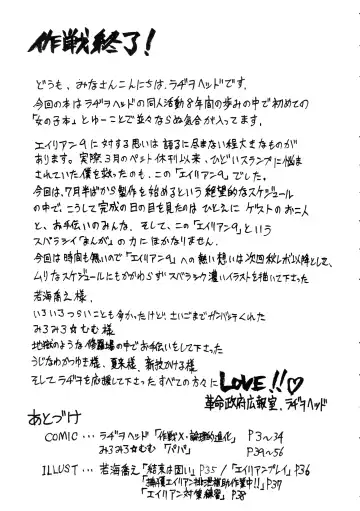 作戦終了！
どうも、みなさんこんにちは、ラヂヲヘッドです。
今回の本はラヂヲヘッドの同人活動8年間の歩みの中で初めての
「女の子本」とゆーことで並々ならぬ気合が入ってます。
エイリアン9に対する思いは語るに尽きない程大きなものが
あります。実際、3月のペット休刊以来、ひどいスランプに悩ま
されていた僕を救ったのも、この「エイリアン9」でした。
今回は、7月半ばから製作を始めるという絶望的なスケジュール
の中で、こうして完成の日の目を見たのはひとえにゲストのお二人
と、お手伝いのみな、そして、この「エイリアン9」という
スバラシイ「まんが」の力にほかなりません。
今回は時間も無いので「エイリアン9」への熱い想いは次回秋レヴォ以降として、
ムリなスケジュールにもかかわらずスバラシク濃いイラストを描いて下さった
若海喬之様、
いろいろつらいことも多かったけど、さいごまでガンバッてくれた
みるみる☆むむ様
地獄のような修羅場の中でお手伝いをして下さった
うじなわかつゆき様、夏来様、新技かける様
そしてラヂヲを応援して下さったすべての方々に LOVE!!♡
革命政府広報室、ラヂヲヘッド
あとづけ
COMIC ･･･ ラヂヲヘッド「作戦X・論理的進化」 P3〜34
みるみる☆むむ 「パパ」 P39〜56
ILLUST ･･･ 若海喬之「結末は固い」P35 / 「エイリアンプレイ」P36
「捕獲エイリアン排泄補助作業中!!」P37
「エイリアン対策練習」P38